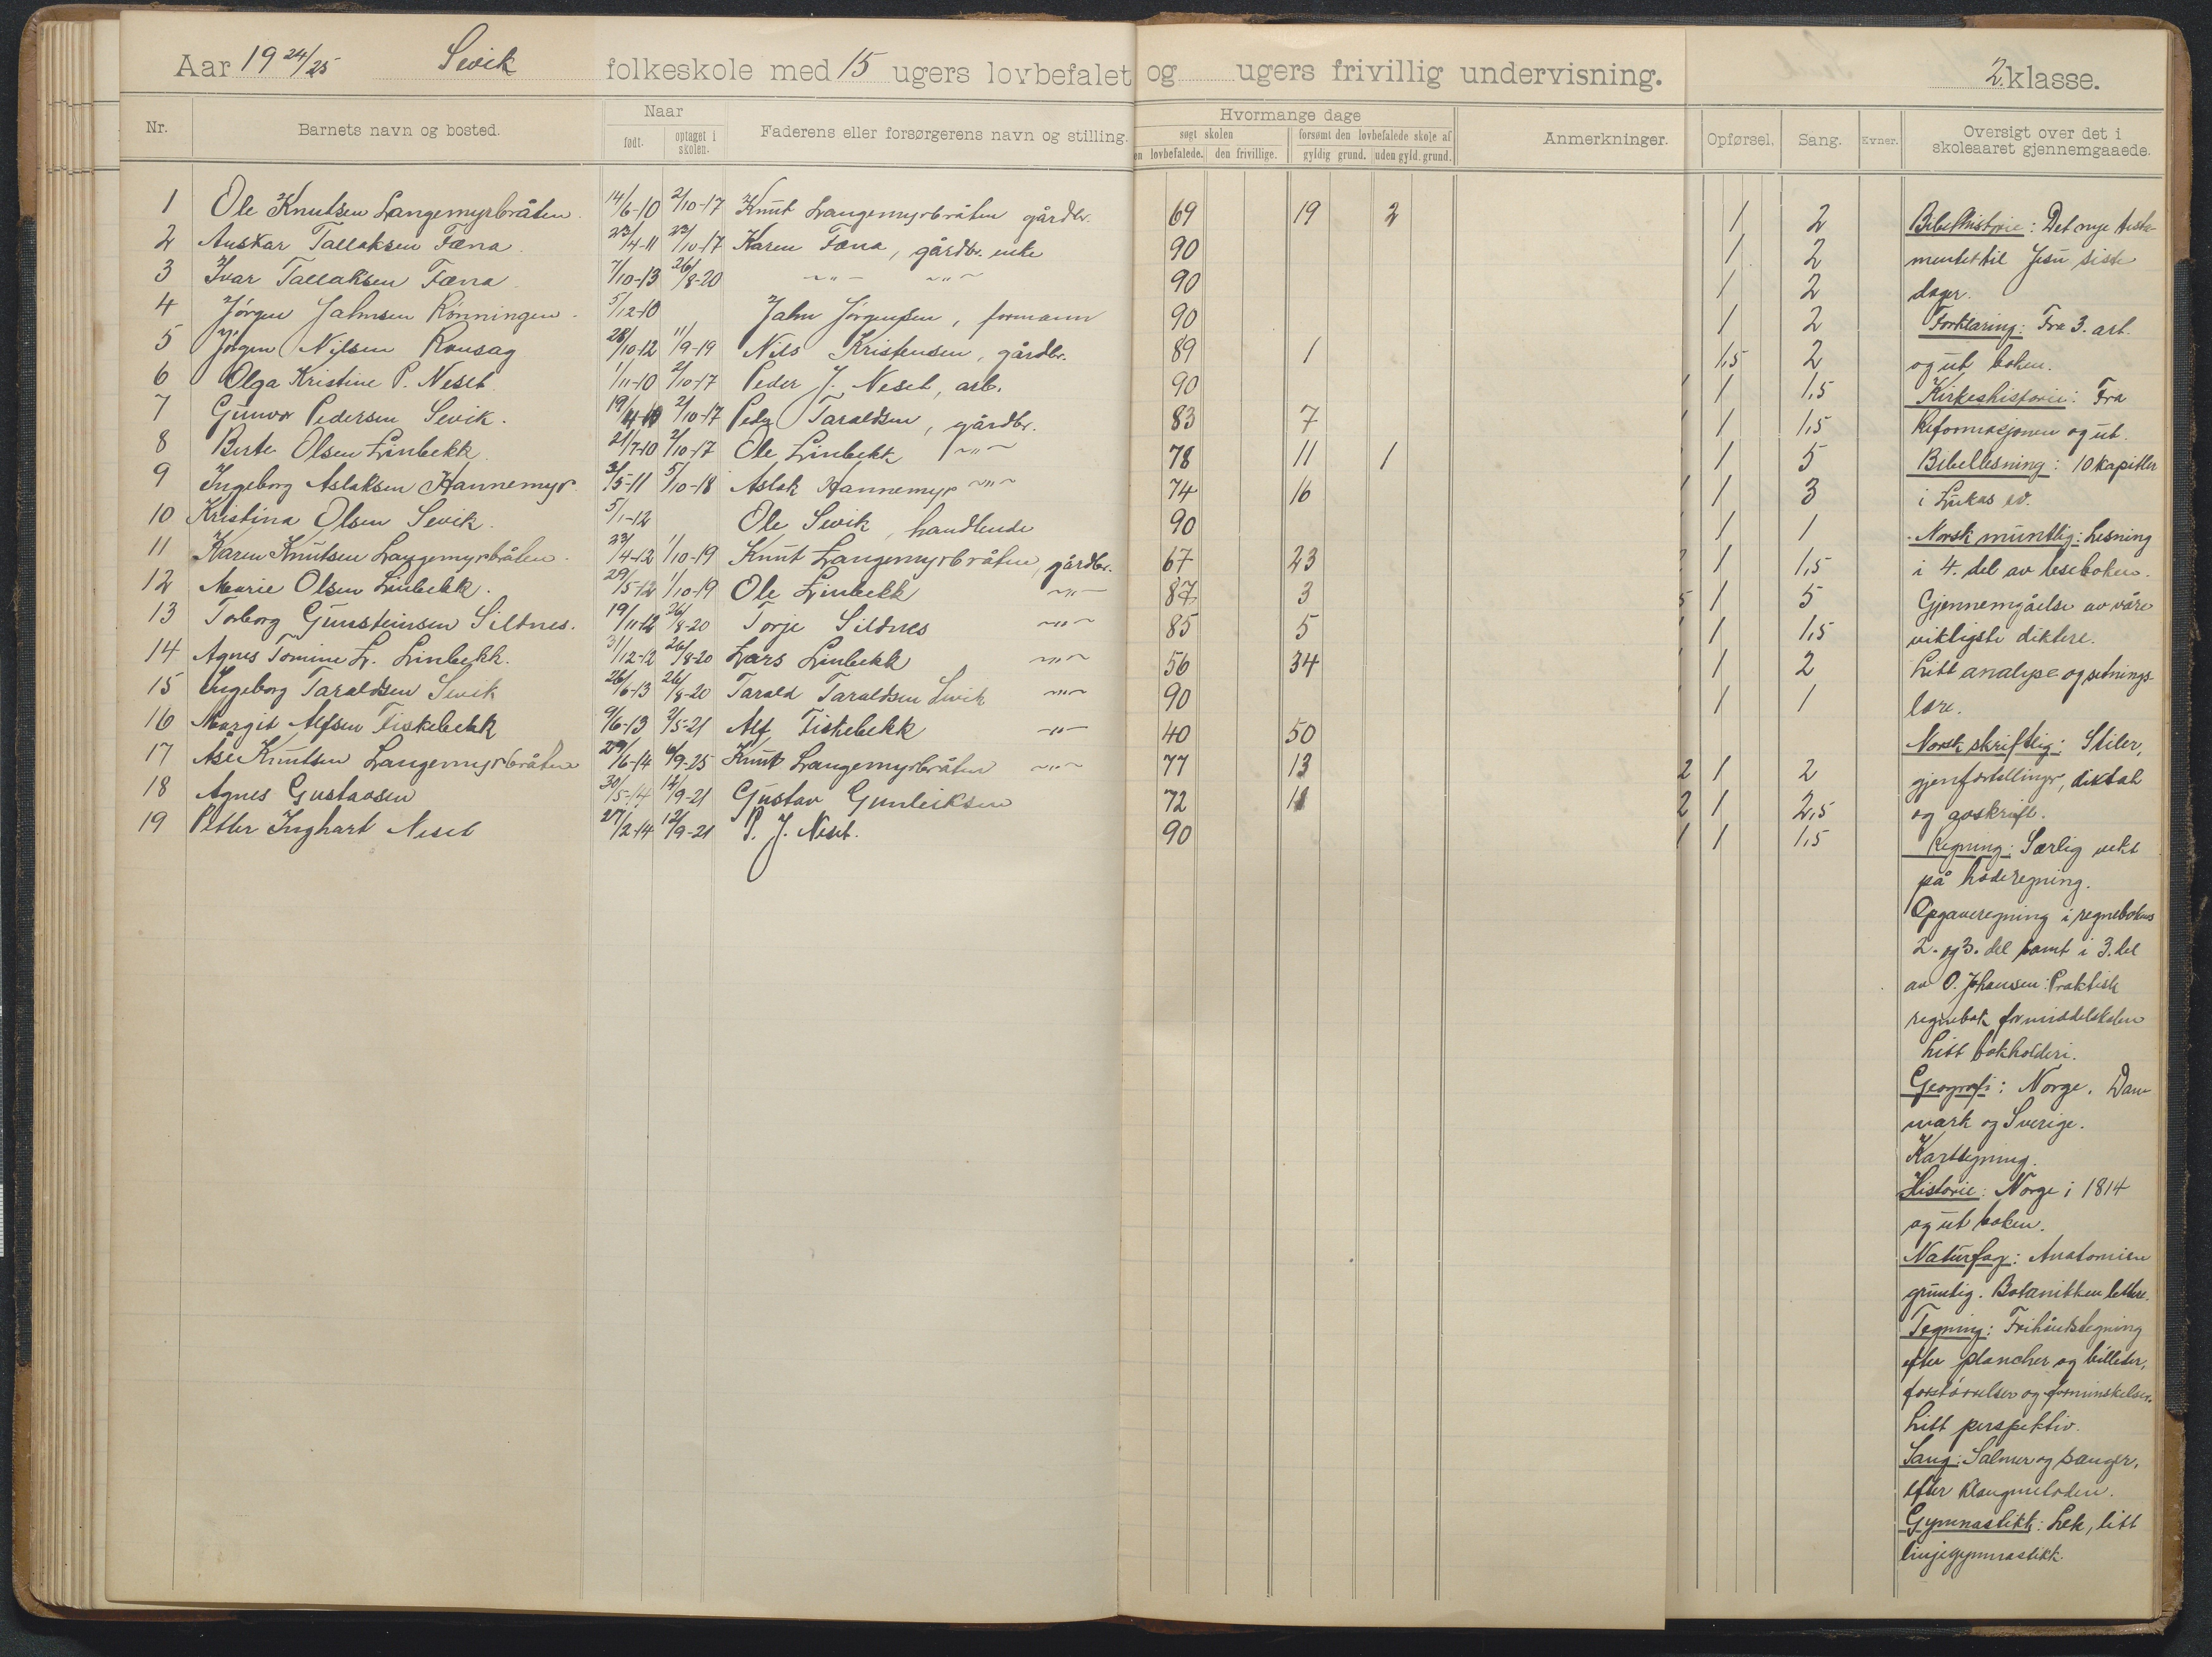 Aar 19 24/25 Sevik folkeskole med 15 ugers lovbefalet og ugers frivillig undervisning. 2. klasse.
Nr. Barnets navn og bosted. Naar født. optaget i skolen. Faderens eller forsørgerens navn og stilling. Hvormange dage søgt skolen en lovbefalede. den frivillige. forsømt den lovbefalede skole af gyldig grund. uden gyld. grund. Anmerkninger. Opførsel. Sang. Evner. Oversigt over det i skoleaaret gjennemgaaede.
1 Ole Knutsen Langemyrbråten. 14/6-10 2/10-17 Knut Langemyrbråten gårdbr. 69 19 2 1 2
2 Anskar Tallaksen Fæna. 23/4-11 23/10-17 Karen Fæna, gårdbr. enke 90 1 2
3 Ivar Tallaksen Fæna. 7/10-13 26/8-20 -"- -"- 90 1 2
4 Jørgen Jahnsen Rønningen. 5/12-10 Jahn Jørgensen, formann 90 1 2
5 Jørgen Nilsen Ronsag 28/10-12 11/9-19 Nils Kristensen, gårdbr. 89 1 1,5 2
6 Olga Kristine P. Neset. 1/11-10 2/10-17 Peder J. Neset, arb. 90 1 1 1,5
7 Gunvor Pedersen Sevik. 19/4-10 2/10-17 Peder Taraldsen, gårdbr. 83 7 1 1 1,5
8 Berte Olsen Linbekk. 21/7-10 2/10-17 Ole Linbekk -"- 78 11 1 1 5
9 Ingeborg Aslaksen Hannemyr. 3/5-11 5/10-18 Aslak Hannemyr -"- 74 16 1 1 3
10 Kristina Olsen Sevik. 5/1-12 Ole Sevik, handlende 90 1 1 1
11 Karen Knutsen Langemyrbråten. 23/4-12 1/10-19 Knut Langemyrbråten, gårdbr. 67 23 2 1 1,5
12 Marie Olsen Linbekk. 29/5-12 1/10-19 Ole Linbekk -"- 87 3 5 1 5
13 Torborg Gunsteinsen Sildnes. 19/11-12 26/8-20 Torje Sildnes -"- 85 5 1 1 1,5
14 Agnes Tomine L. Linbekk. 31/12-12 26/8-20 Lars Linbekk -"- 56 34 1 1 2
15 Ingeborg Taraldsen Sevik 26/6-13 26/8-20 Tarald Taraldsen Sevik -"- 90 1 1 1
16 Margit Alfsen Fiskebekk 9/6-13 2/5-21 Alf Fiskebekk -"- 40 50
17 Åse Knutsen Langemyrbråten 29/6-14 6/9-25 Knut Langemyrbråten -"- 77 13 2 1 2
18 Agnes Gustavsen 30/5-14 12/9-21 Gustav Gunleiksen 72 18 2 1 2,5
19 Petter Inghart Neset 27/2-14 12/9-21 P. J. Neset. 90 1 1 1,5
Bibelhistorie: Det nye testa-
mentet til Jesu siste
dager.
Forklaring: Fra 3. art.
og ut boken.
Kirkeshistorie: Fra
Reformasjonen og ut.
Bibellesning: 10 kapitler
i Lukas ev.
Norsk muntlig: Lesning
i 4. del av leseboken.
Gjennemgåelse av våre
viktigste diktere.
Litt analyse og setnings-
lære.
Norsk skriftlig: Stiler,
gjenfortellinger, diktat
og avskrift.
Regning: Særlig vekt
på hoderegning.
Opgaveregning i regnebokens
2. og 3. del samt i 3. del
av O. Johansen: Praktisk
regnebok for middelskolen
Litt bokholderi.
Geografi: Norge. Dan-
mark og Sverige.
Karttegning.
Historie: Norge i 1814
og ut boken.
Naturfag: Anatomien
grundig. Botanikken lettere.
Tegning: Frihåndstegning
efter plancher og billeder,
forstørrelser og forminskelser.
Litt perspektiv.
Sang: Salmer og sanger,
efter klangmetoden.
Gymnastikk: Lek, litt
linjegymnastikk.